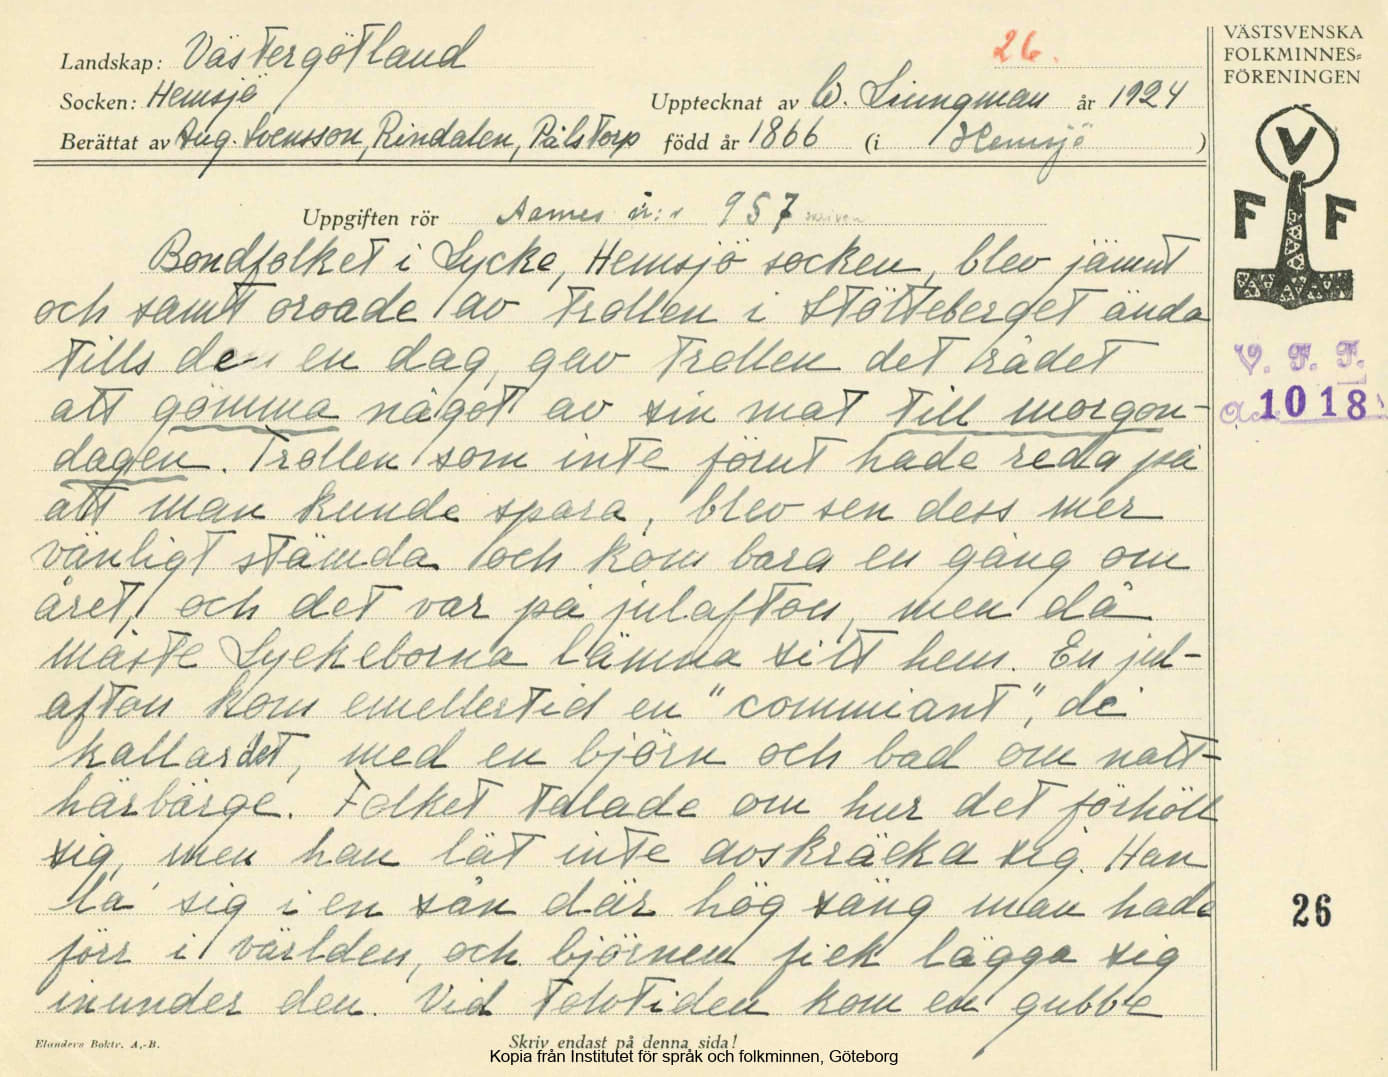 Landskap: Västergötland
Socken: Hemsjö
Upptecknat av W. Liungman år 1924
Berättat av Aug. Svensson, Rindalen, Pålstorp född år 1866 (i Hemsjö)
26.
Uppgiften rör Aarnes nr 957 skriven
Bondfolket i Lycke, Hemsjö socken, blev jämnt
och samt oroade av trollen i Stötteberget ända
tills den en dag, gav trollen det rådet
att gömma något av sin mat till morgon-
dagen. Trollen som inte förut hade reda på
att man kunde spara, blev sen dess mer
vänligt stämda och kom bara en gång om
året, och det var på julafton, men då
måste Lyckeborna lämna sitt hem. En jul-
afton kom emellertid en "commiant", de
kallar det, med en björn och bad om natt-
härbärge. Folket talade om hur det förhöll
sig, men han lät inte avskräcka sig. Han
la sig i en sån där hög säng man hade
förr i världen, och björnen fick lägga sig
inunder den. Vid tolvtiden kom en gubbe
Elanders Boktr. A.-B.
Skriv endast på denna sida!
Kopia från Institutet för språk och folkminnen, Göteborg
VÄSTSVENSKA
FOLKMINNES-
FÖRENINGEN
V
F F
V. F. F.
Acc. 1018
26